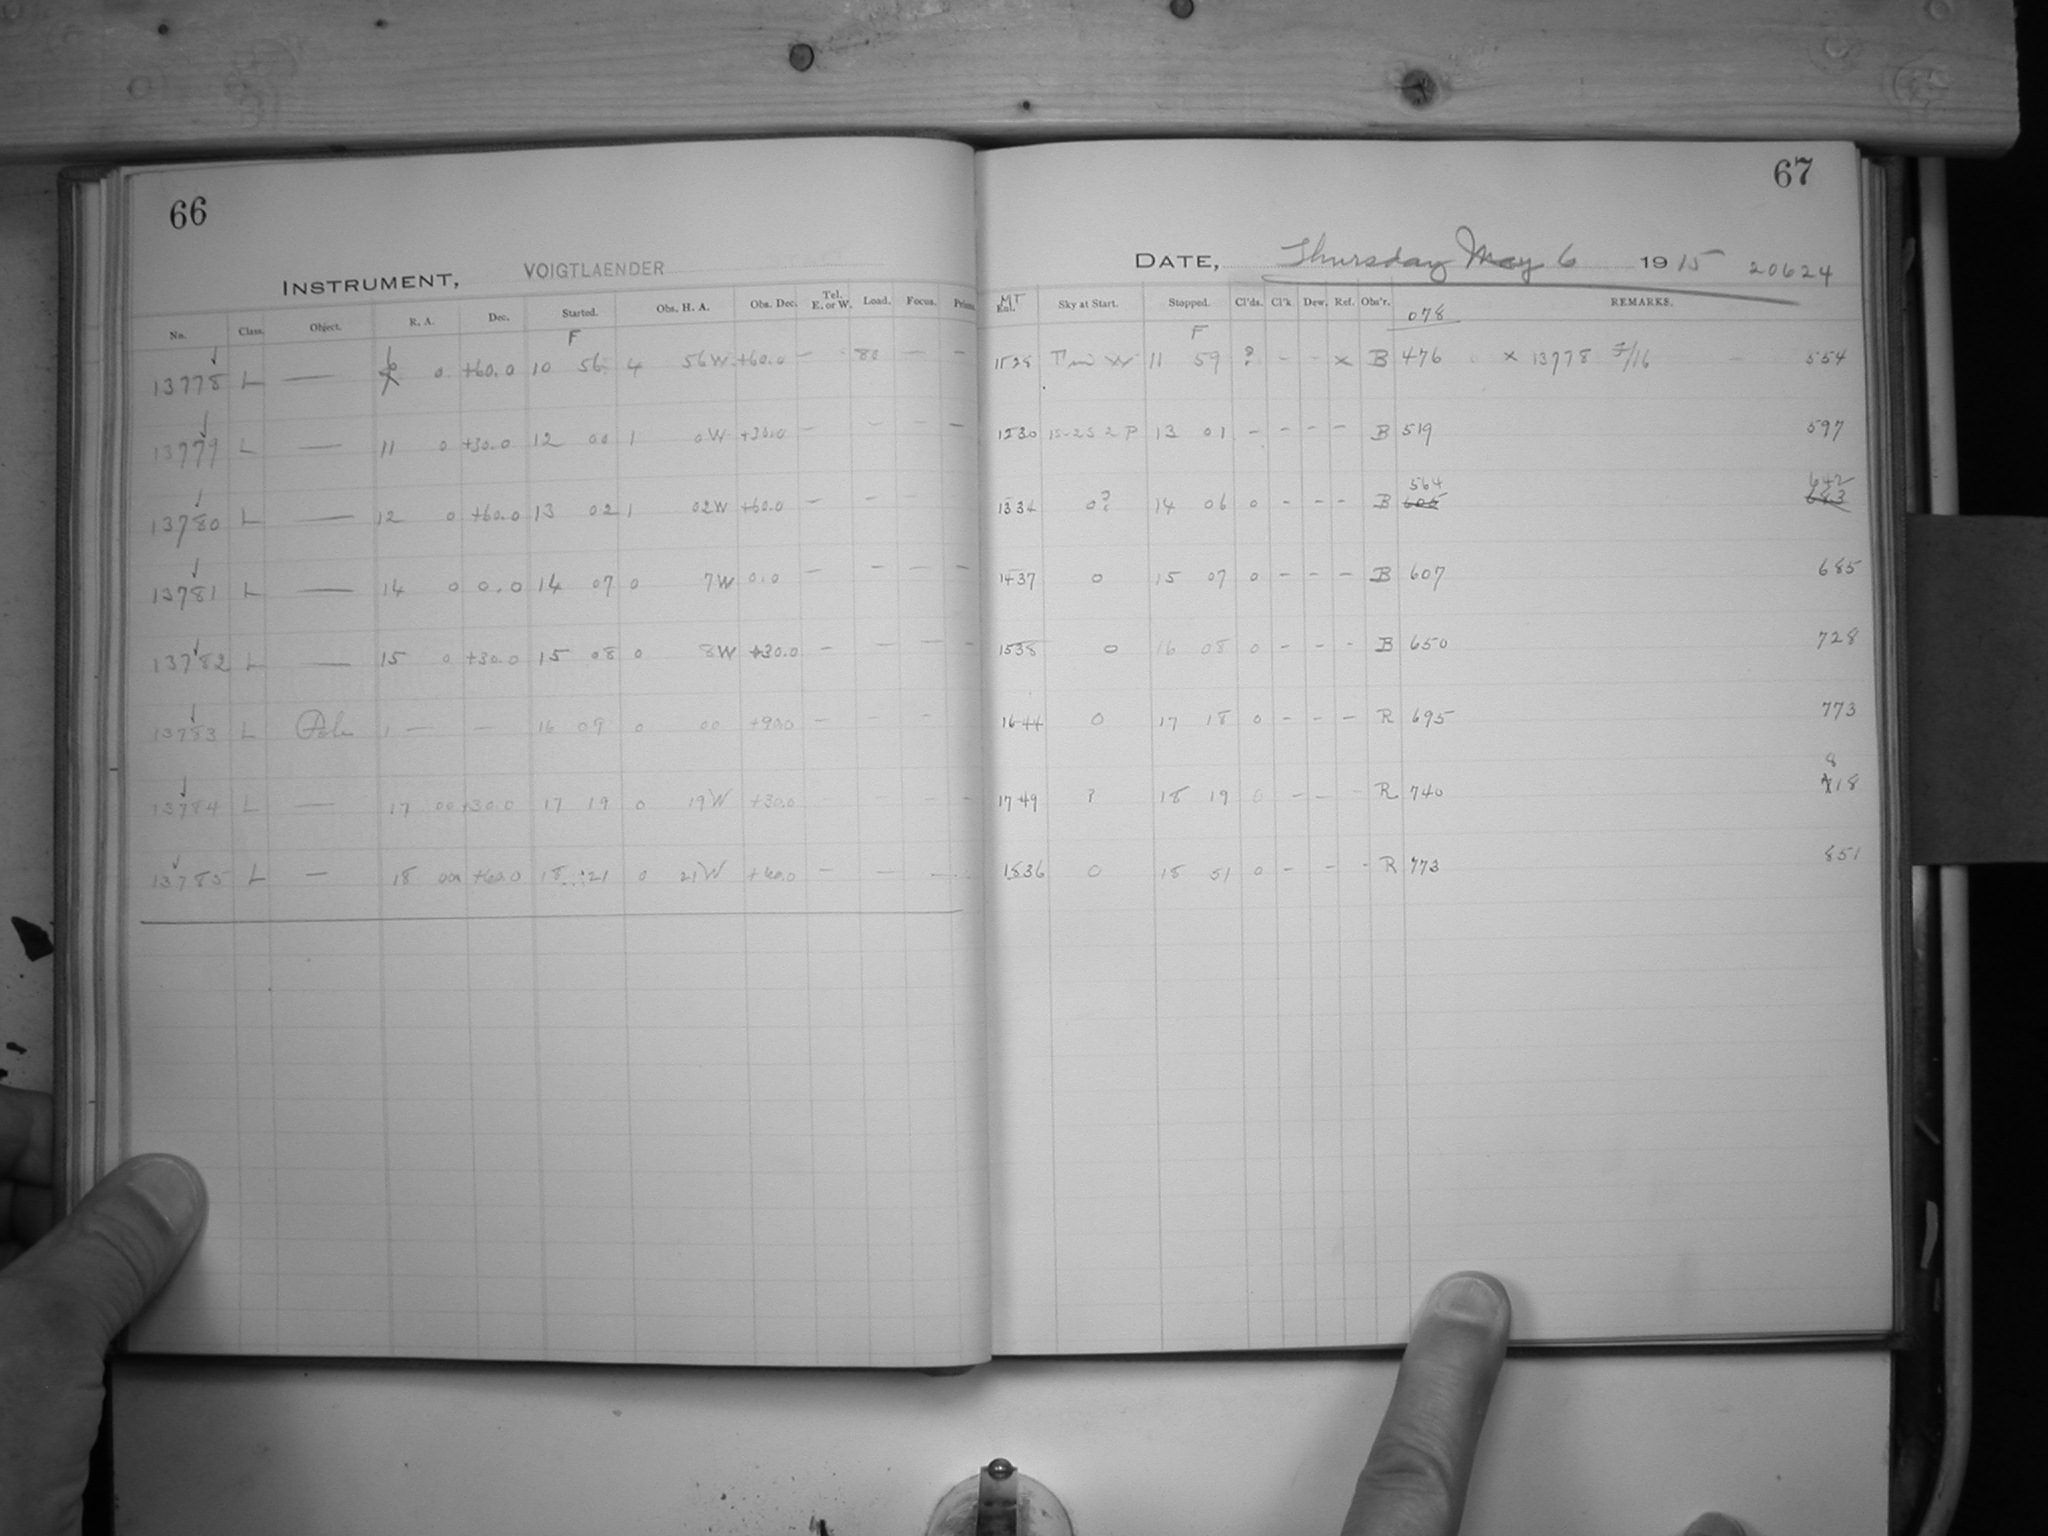 66
INSTRUMENT, VOIGTLAENDER
No. Class. Object. R. A. Dec. Started. Obs. H. A. Obs. Dec. Tel. E. or W. Load. Focus. Prisms
F
13778 L — 6 0 +60.0 10 56 4 56W +60.0 — 80 — —
13779 L — 11 0 +30.0 12 00 1 0W +30.0 — — — —
13780 L — 12 0 +60.0 13 02 1 02W +60.0 — — —
13781 L — 14 0 0.0 14 07 0 7W 0.0 — — — —
13782 L — 15 0 +30.0 15 08 0 8W +30.0 — — — —
13783 L Pole 1 — — 16 09 0 00 +90.0 — — —
13784 L — 17 00 +30.0 17 19 0 19W +30.0 — —
13785 L — 18 00 +60.0 18 21 0 21W +60.0 — — — —
67
DATE, Thursday May 6 1915 20624
MT
Enl. Sky at Start. Stopped. Cl'ds. Cl'k Dew. Ref. Obs'r. REMARKS.
078
F
1128 W 11 59 ? - - x B 476 x 13778 5/16 554
1230 15-25 2 P 13 01 - - - - B 519 597
564 642
1334 0? 14 06 0 - - - B 606 683
1437 0 15 07 0 - - - B 607 685
1538 0 16 08 0 - - - B 650 728
1644 0 17 18 0 - - - R 695 773
8
1749 ? 18 19 0 - - - R 740 718
1836 0 18 51 0 - - - R 773 851